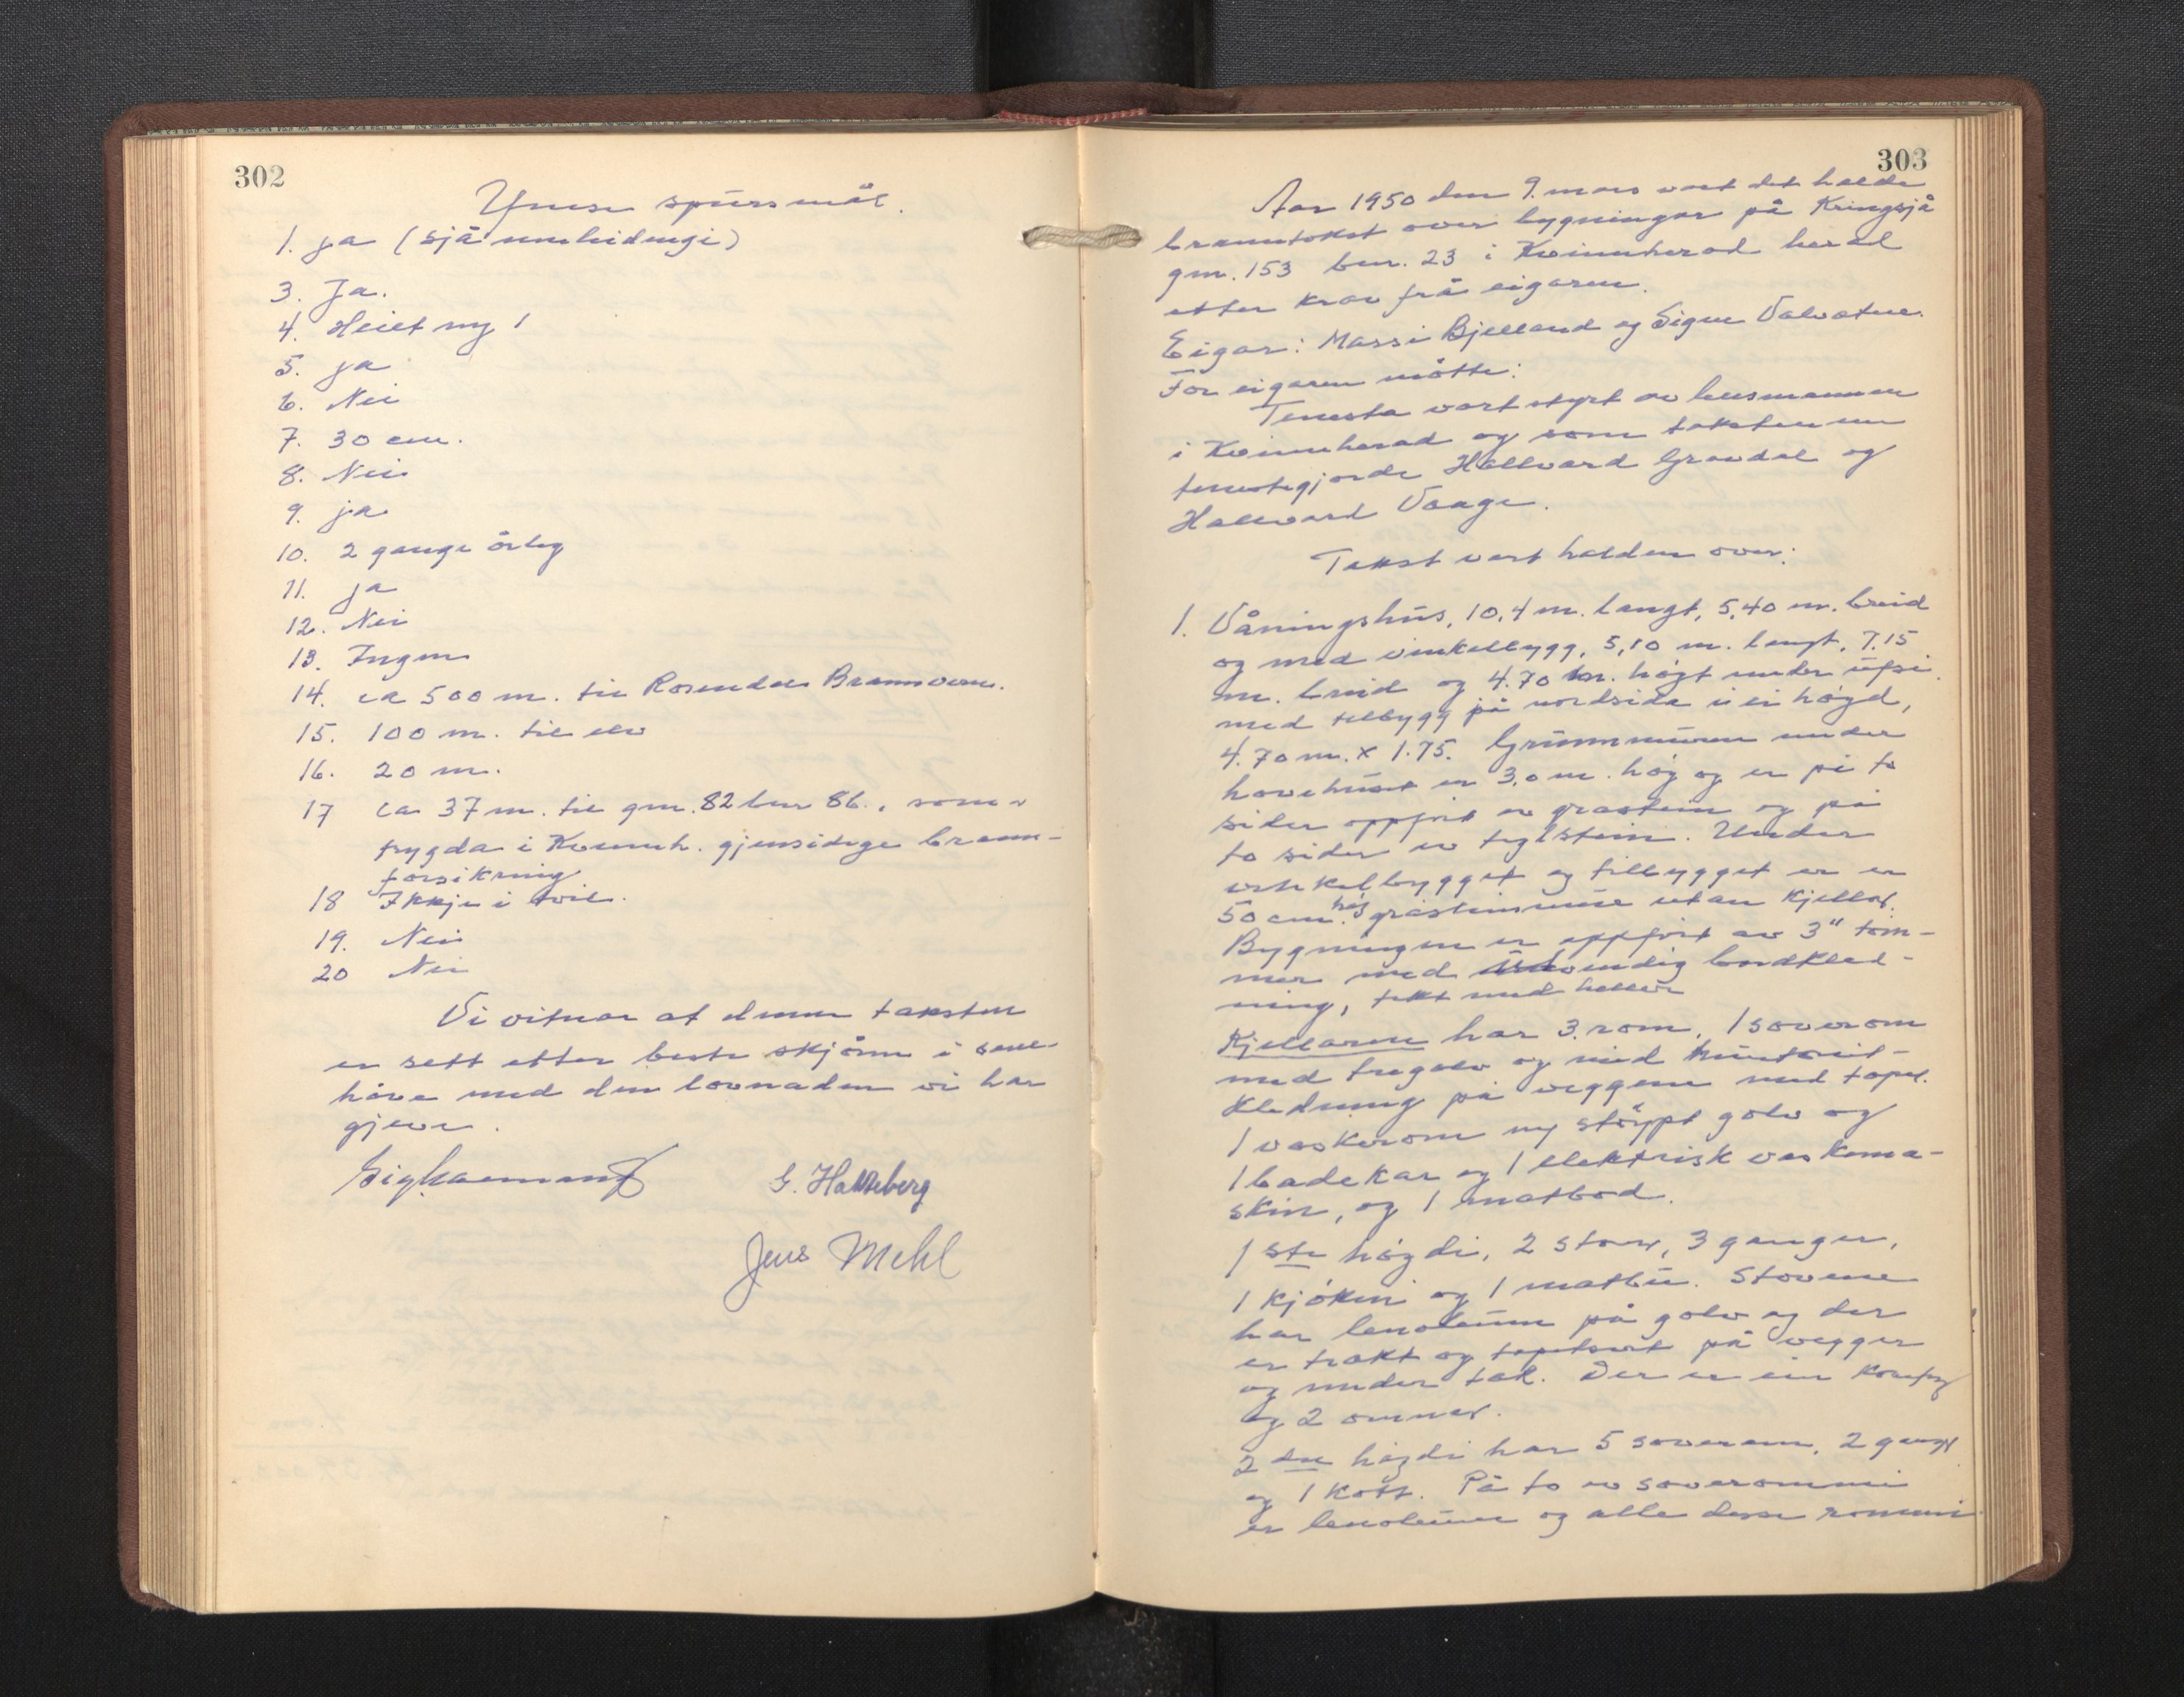 302
Ymse spursmål.
1. ja (sjå umhidengi)
3. Ja.
4. Heilt ny!
5. ja
6. Nei
7. 30 cm.
8. Nei
9. ja
10. 2 gange årleg
11. ja
12. Nei
13. Ingen
14. ca 500 m. til Rosendal Brannvern.
15. 100 m. til elv
16. 20 m.
17 ca 37 m. til gnr. 82 bnr 86., som er
trygda i Kvinnh. gjensidige brann-
forsikring
18 Ikkje i tvil.
19. Nei
20 Nei
Vi vitnar at denne taksten
er sett etter beste skjönn i sam-
høve med den lovnaden vi har
gjeve.
G. Hatteberg
Jens Mehl
303
Aar 1950 den 9. mars vart det halde
branntakst over bygningar på Kringsjå
gnr. 153 bnr. 23 i Kvinnherad herad
etter krav frå eigaren.
Eigar: Massi Bjelland og Signe Valvatne.
For eigaren møtte:
Tenesta vart styrt av lensmannen
i Kvinnherad og som takstmenn
tenestegjorde Hallvard Gravdal og
Hallvard Vaage.
Takst vart halden over:
1. Våningshus, 10,4 m. langt, 5,40 m. breid
og med vinkelbygg, 5,10 m. langt, 7.15
m. breid og 4.70 m. høgt under ufsi
med tilbygg på nordsida i ei høgd,
4.70 m. x 1.75. Grunnmuren under
hovehuset er 3,0 m. høg og er på to
sider oppført av gråstein og på
to sider av teglstein. Under
vinkelbygget og tilbygget er er
50 cm. høg gråsteinmur utan kjellar.
Bygningen er oppført av 3" töm-
mer med utvendig bordkled-
ning, tekt med hellor
Kjellaren har 3. rom, 1 soverom
med tregolv og med huntonit-
kledning på veggene med tapet.
1 vaskerom ny støypt golv og
1 badekar og 1 elektrisk vaskema-
skin, og 1 matbod.
1 ste høgdi, 2 stover, 3 ganger,
1 kjøken og 1 matbu. Stovene
har lenoleum på golv og der
er trakt og tapetsert på vegger
og under tak. Der er ein komfyr
og 2 omner.
2 dre høgdi har 5 soverom, 2 ganger
og 1 kott. På to av soverommi
er lenoleum og alle desse rommi